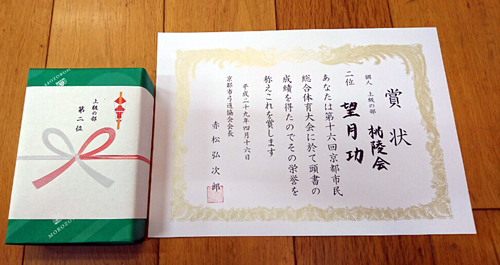 賞状
個人 上級の部
桃陵会
二位 望月功
あなたは第十六回京都市民
総合体育大会に於て頭書の
成績を得たのでその栄誉を
称えこれを賞します
平成二十九年四月十六日
京都市弓道協会会長
赤松弘次郎
上級の部
第二位
MOROZOFF